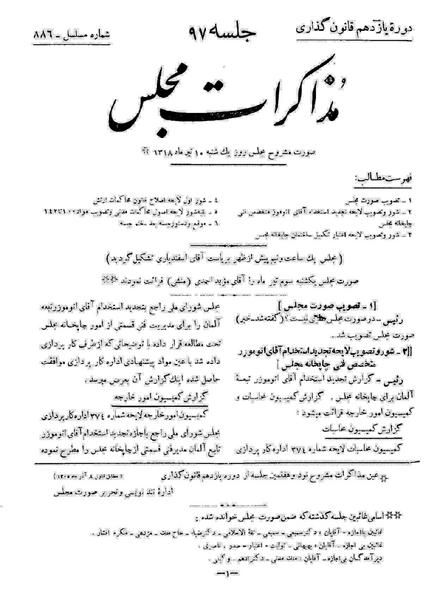 دورهٔ یازدهم قانون گذاری
جلسه ۹۷
شماره مسلسل - ۸۸۶
مذاکرات مجلس
صورت مشروح مجلس روز یک شنبه ۱۰ تیر ماه ۱۳۱۸
فهرست مطالب:
۱ - تصویب صورت مجلس
۲ - شور و تصویب لایحه تجدید استخدام آقای اتوموزر متخصص فنی
چاپخانه مجلس
۳ - شور و تصویب لایحه اعتبار تکمیل ساختمان چاپخانه مجلس
۴ - شور اول لایحه اصلاح قانون محاکمات ارتش
۵ - بقیه شور لایحه اصول محاکمات مدنی و تصویب مواد
۶ - موقع و دستور جلسه بعد ختم جلسه
(مجلس یک ساعت و نیم پیش از ظهر بریاست آقای اسفندیاری تشکیل گردید)
صورت مجلس یکشنبه سوم تیر ماه را آقای مؤید احمدی (منشی) قرائت نمودند
[۱ - تصویب صورت مجلس]
رئیس - در صورت مجلس نظری نیست؟ (گفته شد - خیر)
صورت مجلس تصویب شد.
[۲ - شور و تصویب لایحه تجدید استخدام آقای اتوموزر
متخصص فنی چاپخانه مجلس]
رئیس - گزارش تجدید استخدام آقای اتوموزر تبعهٔ
آلمان برای چاپخانه مجلس. گزارش کمیسیون محاسبات و
کمیسیون امور خارجه قرائت میشود:
گزارش کمیسیون محاسبات
کمیسیون محاسبات لایحه شماره ۳۷۴ اداره کار پردازی
مجلس شورای ملی راجع بتجدید استخدام آقای اتوموزر تبعه
آلمان را برای مدیریت فنی قسمتی از امور چاپخانه مجلس
تحت مطالعه قرار داده با توضیحاتی که از طرف کار پردازی
داده شد با عین مواد پیشنهادی اداره کار پردازی موافقت
حاصل شده اینک گزارش آن بعرض میرسد.
گزارش کمیسیون امور خارجه
کمیسیون امور خارجه لایحه شماره ۳۷۴ اداره کار پردازی
مجلس شورای ملی راجع باجازه تجدید استخدام آقای اتوموزر
تابع آلمان مدیر فنی قسمتی از چاپخانه مجلس را مطرح نموده
عین مذاکرات مشروح نود و هفتمین جلسه از دوره یازدهم قانون گذاری
اداره تند نویسی و تحریر صورت مجلس
اسامی غائبین جلسه گذشته که ضمن صورت مجلس خوانده شده:
غائبین بی اجازه - آقایان:
دیر آمدگان بی اجازه - آقایان:
- ۱ -